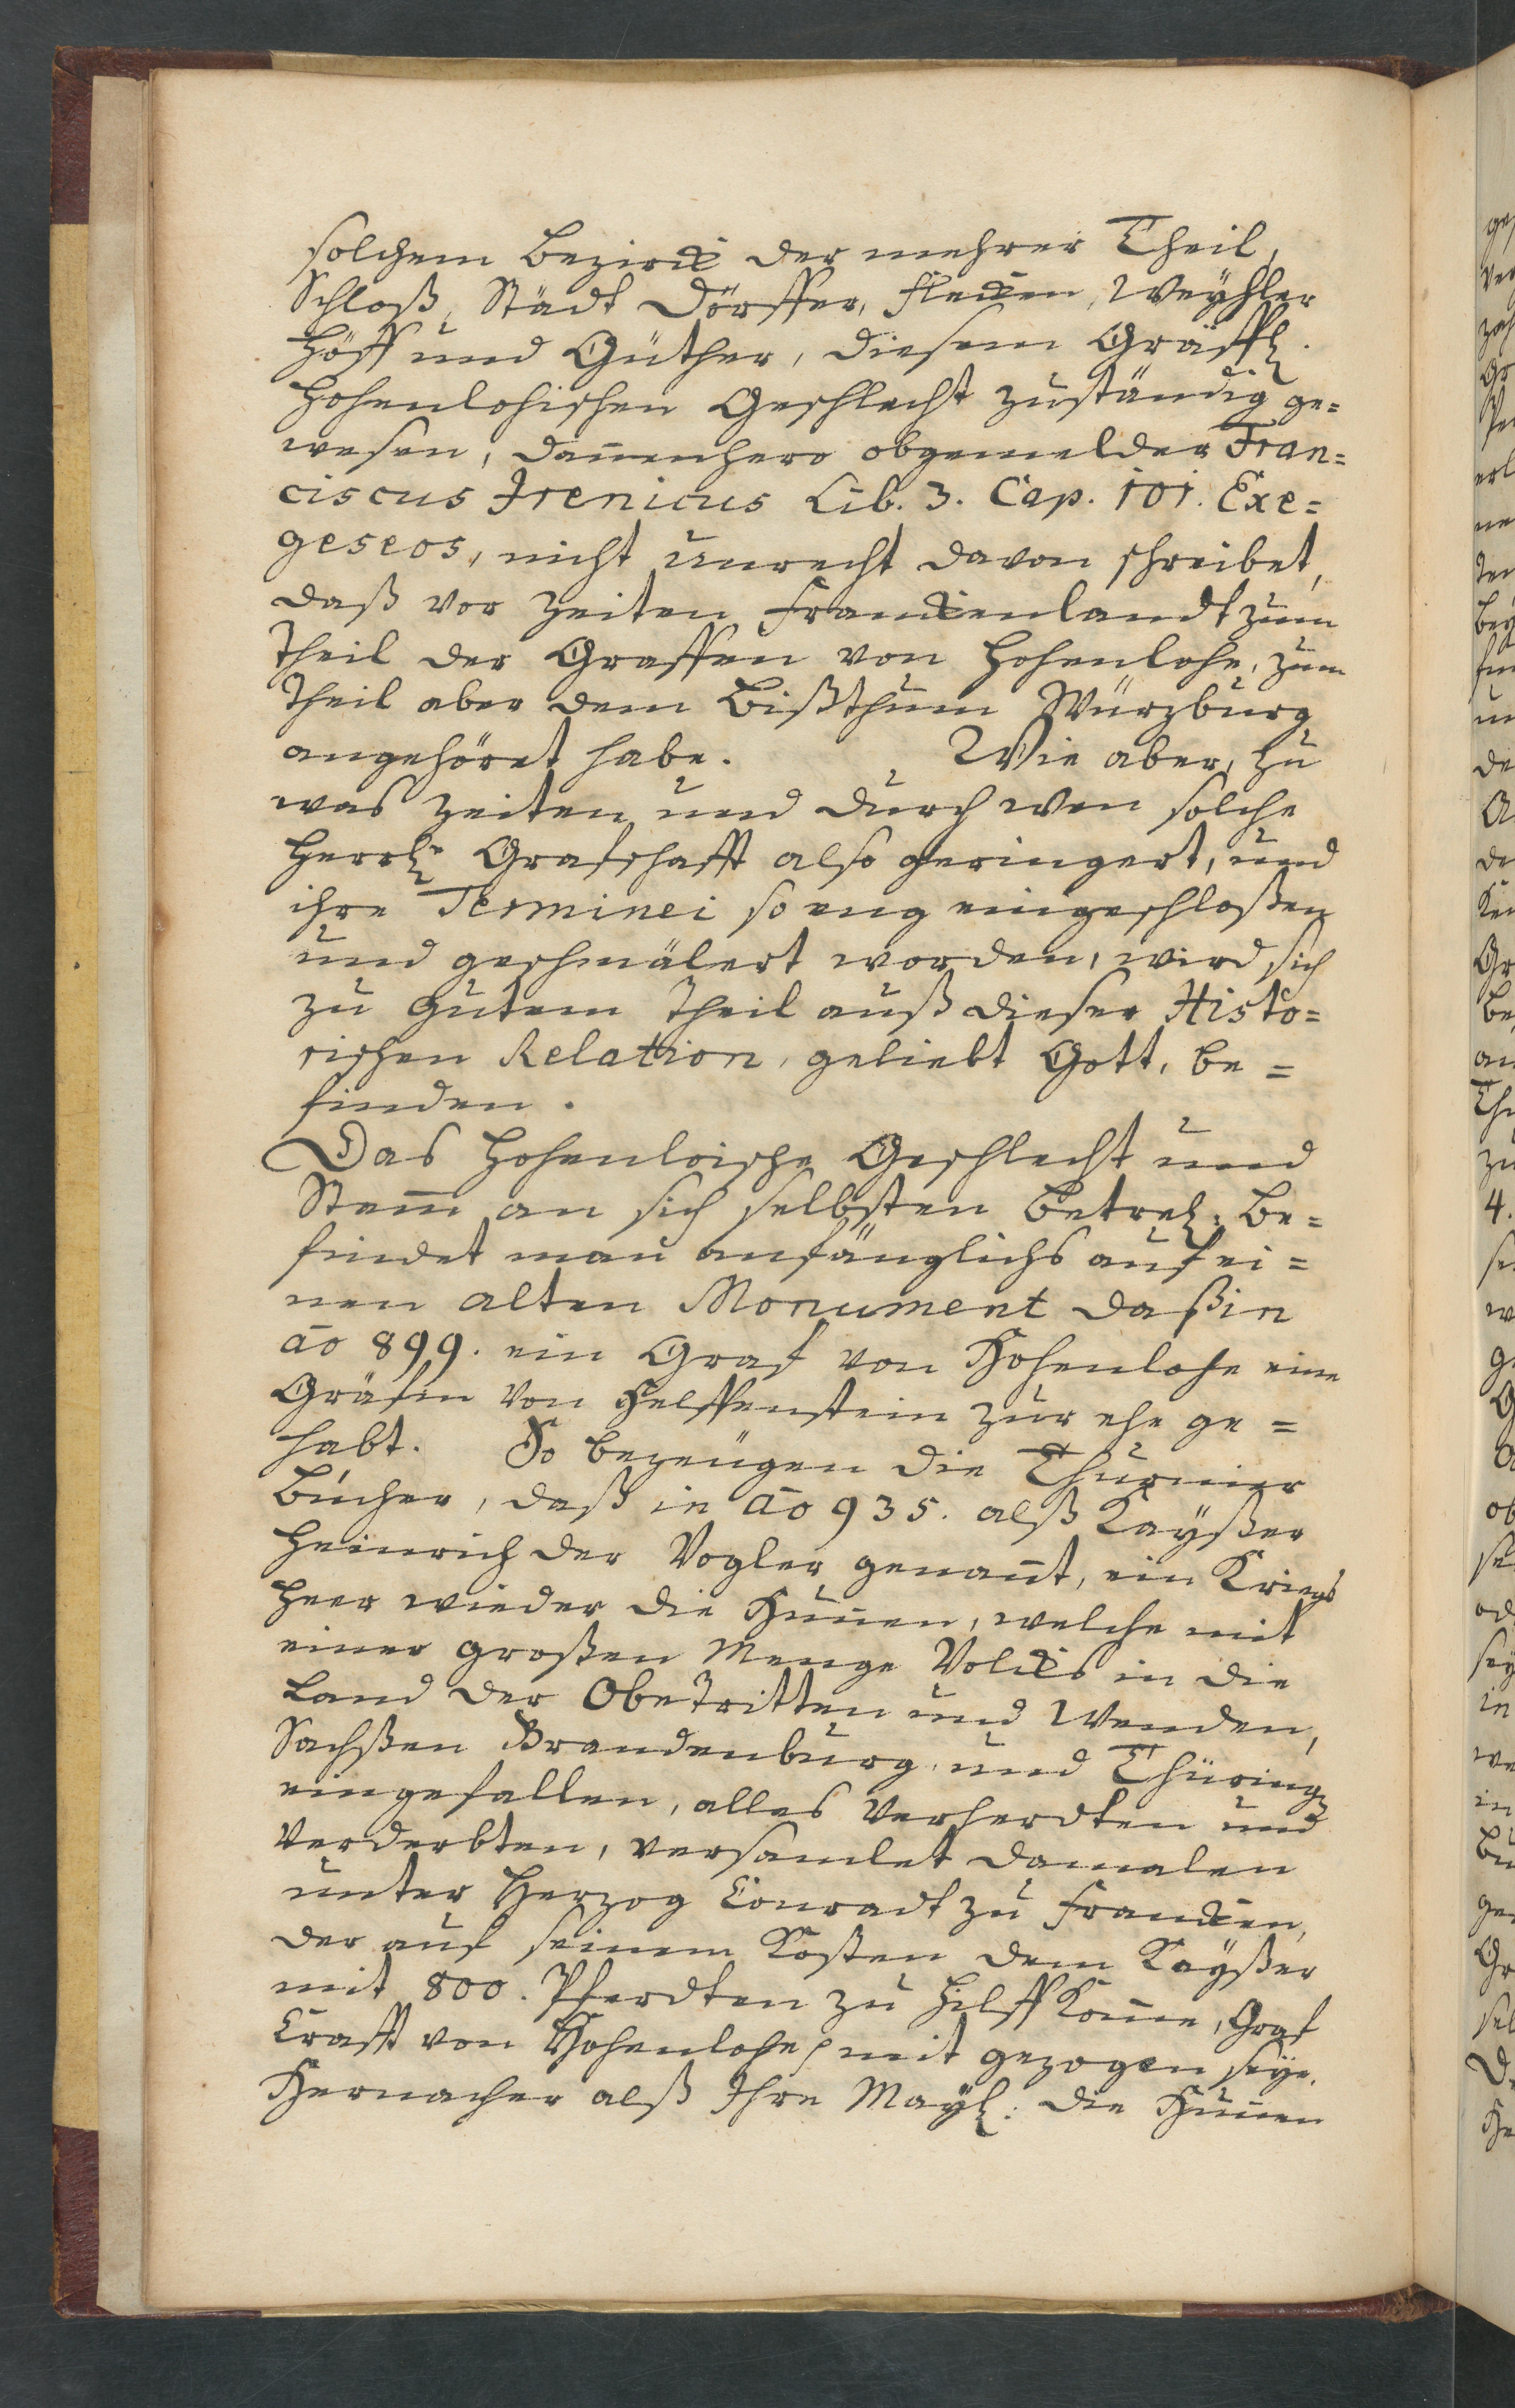 solchem Bezirck der mehrer Theil,
Schloß, Städt Dörffer, Flecken, Weyhler
Höff und Güther, diesem Gräffl.
Hohenlohischen Geschlecht zuständig ge=
wesen, dan̄enhero obgemelder Fran=
ciscus Irenicus Lib. 3. Cap. 101. Exe=
geseos, nicht unrecht davon schreibet,
daß vor Zeiten Franckenlandt zum
Theil der Graffen von Hohenlohe, zum
Theil aber dem Bißthum Würzburg
angehöret habe. Wie aber, zu
was Zeiten und durch wen solche
Herrl. Grafschafft also geringert, und
ihre Terminei so eng eingeschloßen
und geschmälert worden, wird sich
zu gutem Theil auß dieser Histo=
rischen Relation, geliebt Gott, be=
finden.
Das Hohenloische Geschlecht und
Stam̄ an sich selbsten betrel: be=
findet man anfänglichs auf ei=
nen alten Monument daß in
āo 899. ein Graf von Hohenlohe eine
Gräfin von Helffenstein zur ehe ge=
habt. So bezeugen die Thurnier
Bücher, daß in āo 935. alß Kayßer
Heinrich der Vogler genan̄t, ein Kriegs
Heer wieder die Hun̄en, welche mit
einer großen Menge Volcks in die
Land der Obetritten und Wenden,
Sachßen Brandenburg, und Thüring.
eingefallen, alles verherdten und
verderbten, versamlet damalen
unter Herzog Conradt zu Francken,
der auf seinem Kosten dem Kayßer
mit 800. Pferdten zu Hilff kom̄e, Graf
Crafft von Hohenlohe mit gezogen seye.
Hernacher alß Ihre Mayl: die Hun̄en